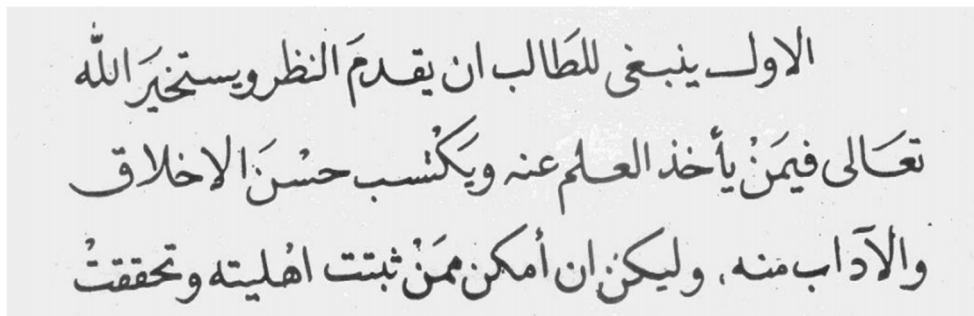 الاول ينبغى للطَالب ان يقدمَ النظر ويستخيَر الله
تعَالى فيمَنْ يأخذ العلم عنه ويَكْتسب حسْنَ الاخلاق
والآداب منه، وليكن ان أمكن ممَنْ ثبتت اهْليته وتحققتْ